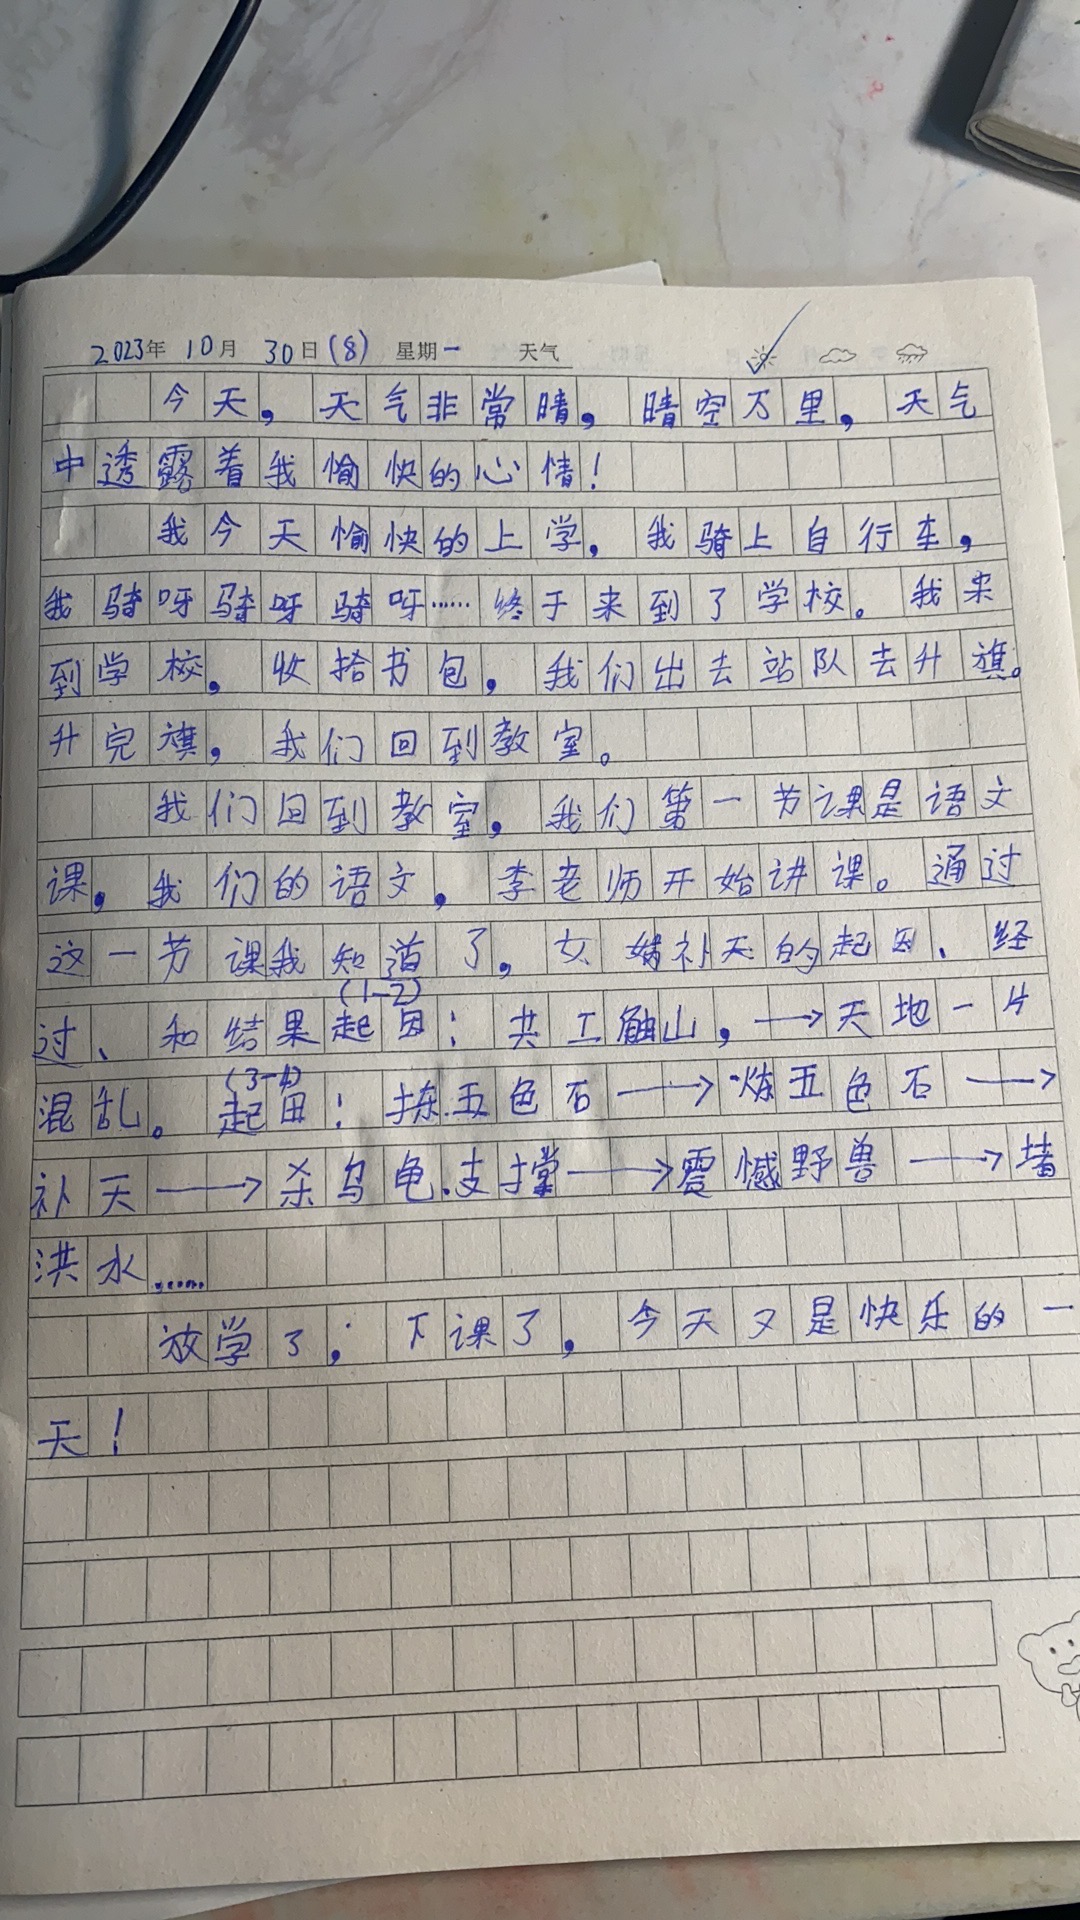 2023年 10月 30日(8) 星期一 天气
今天，天气非常晴，晴空万里，天气
中透露着我愉快的心情！
我今天愉快的上学。我骑上自行车，
我骑呀骑呀骑呀……终于来到了学校。我来
到学校，收拾书包，我们出去站队去升旗。
升完旗，我们回到教室。
我们回到教室，我们第一节课是语文
课，我们的语文，李老师开始讲课。通过
这一节课我知道了，女娲补天的起因、经
(1-2)
过、和结果起因：共工触山，→天地一片
(3-4)
混乱。起因：拣五色石→炼五色石→
补天→杀乌龟.支撑→震憾野兽→堵
洪水……
放学了，下课了，今天又是快乐的一
天！